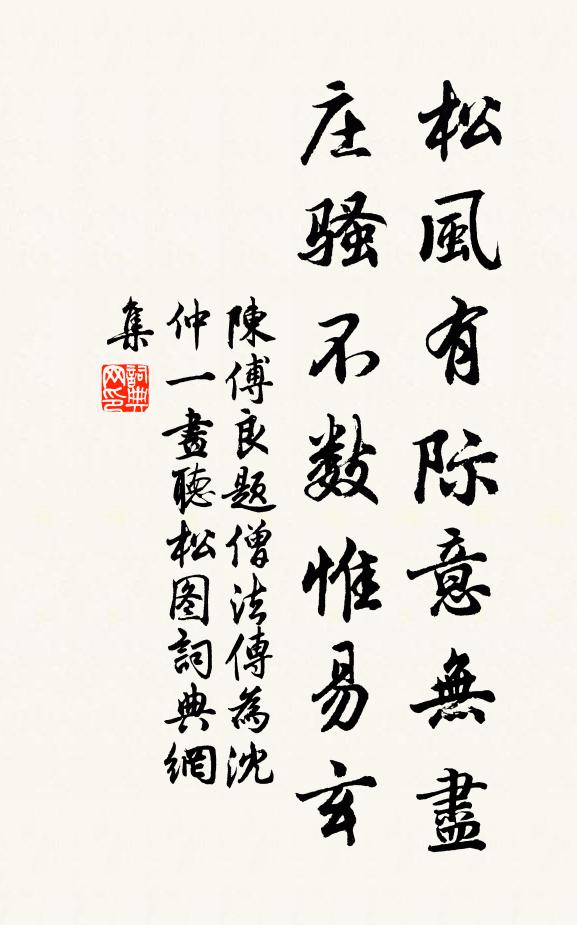 松風有际意無盡
庄騷不数惟易玄
陳傅良题僧法傳為沈
仲一畫聽松图詞典網
集
詞典
网印